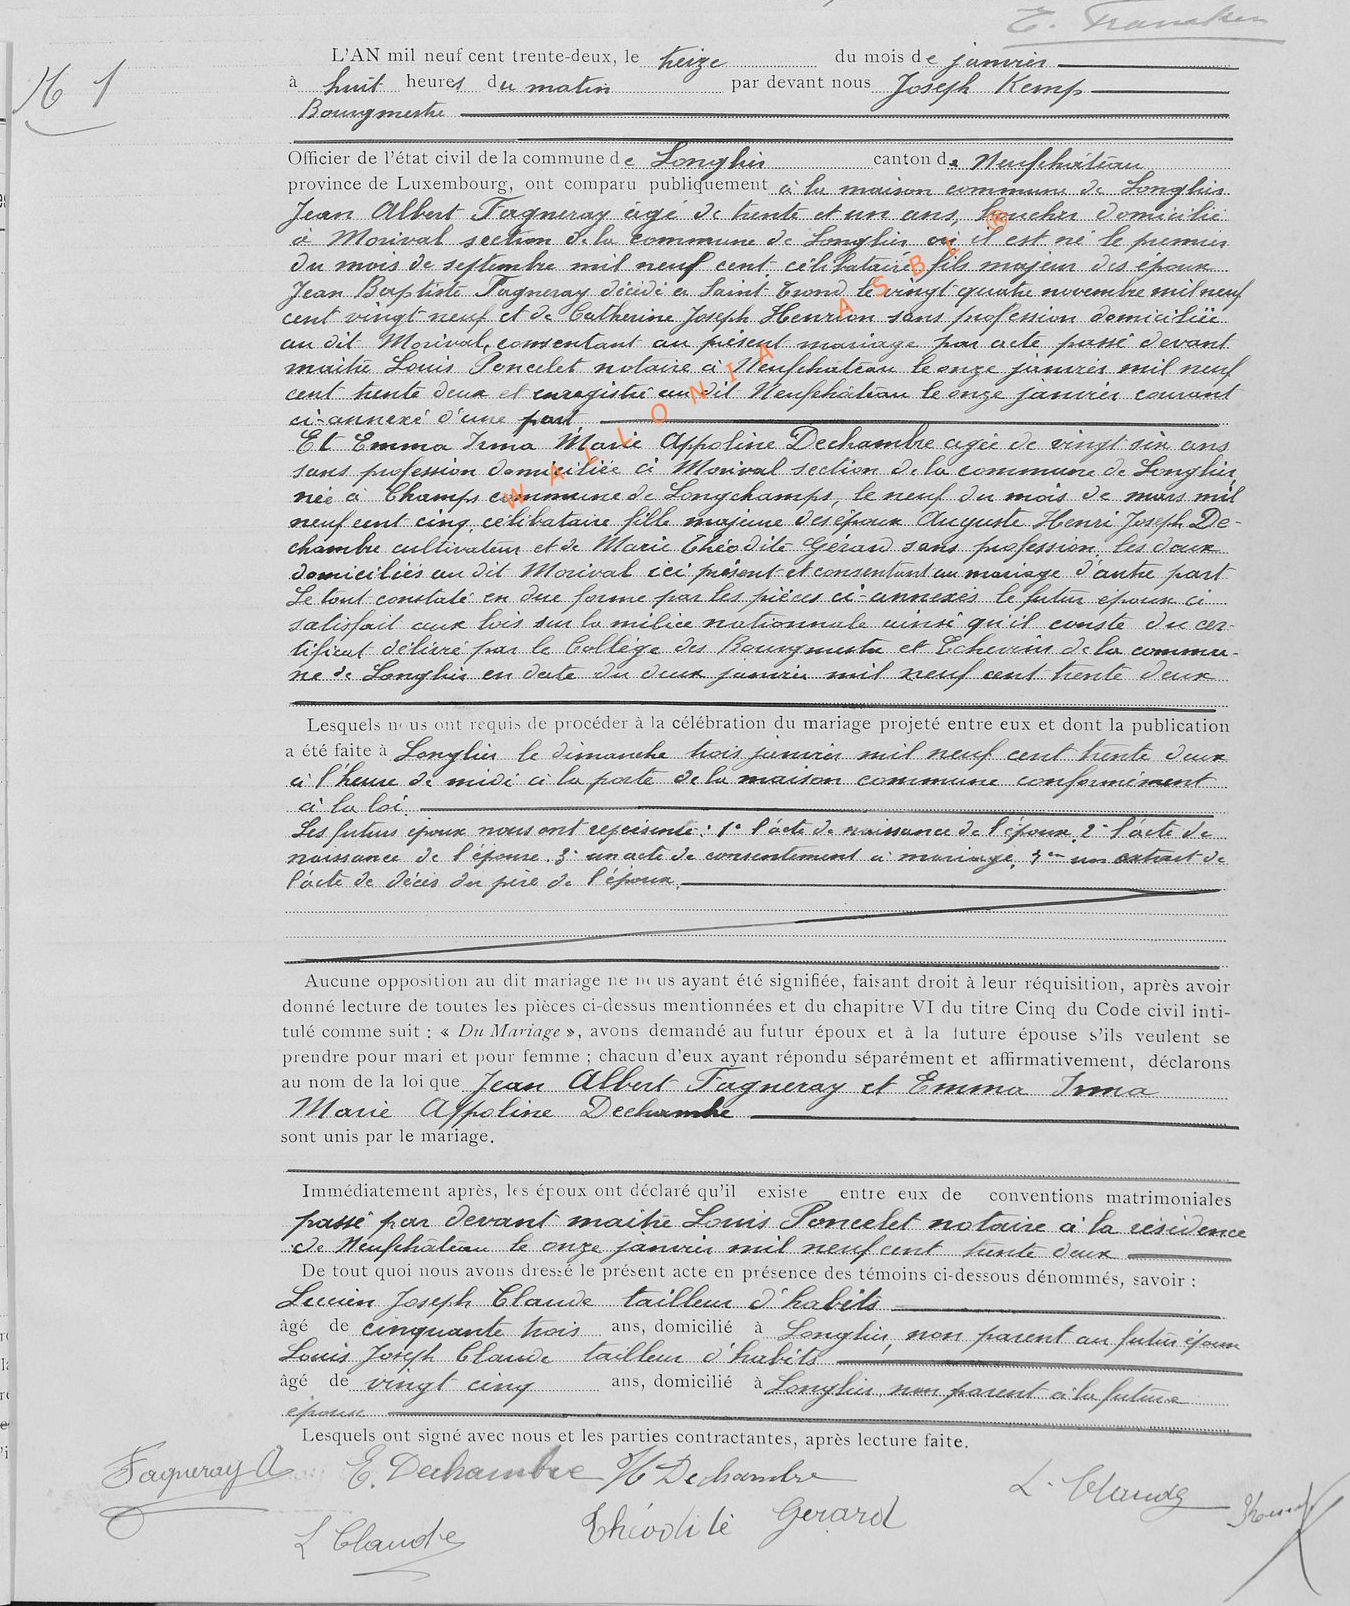 N 1
L'AN mil neuf cent trente-deux, le treize du mois de janvier
à huit heures du matin par devant nous Joseph Kemp
Bourgmestre
Officier de l'état civil de la commune de Longlier canton de Neufchâteau
province de Luxembourg, ont comparu publiquement à la maison commune de Longlier
Jean Albert Fagneray âgé de trente et un ans, boucher domicilié
à Morival section de la commune de Longlier où il est né le premier
du mois de septembre mil neuf cent, célibataire fils majeur des époux
Jean Baptiste Fagneray décédé à Saint-Trond le vingt-quatre novembre mil neuf
cent vingt neuf et de Catherine Joseph Henrion sans profession domiciliée
au dit Morival, consentant au présent mariage par acte passé devant
maître Louis Poncelet notaire à Neufchâteau le onze janvier mil neuf
cent trente deux et enregistré au dit Neufchâteau le onze janvier courant
ci-annexé d'une part
Et Emma Irma Marie Appoline Dechambre agée de vingt six ans
sans profession domiciliée à Morival section de la commune de Longlier,
née à Champs commune de Longchamps, le neuf du mois de mars mil
neuf cent cinq, célibataire fille majeure des époux Auguste Henri Joseph De-
chambre cultivateur et de Marie Théodite Gérard sans profession, les deux
domiciliés au dit Morival ici présent et consentant au mariage d'autre part
Le tout constaté en due forme par les pièces ci-annexés le futur époux a
satisfait aux lois sur la milice nationnale ainsi qu'il conste du cer-
tificat délivré par le Collège des Bourgmestre et Echevins de la commu-
ne de Longlier en date du deux janvier mil neuf cent trente deux
Lesquels nous ont requis de procéder à la célébration du mariage projeté entre eux et dont la publication
a été faite à Longlier le dimanche trois janvier mil neuf cent trente deux
à l'heure de midi à la porte de la maison commune conformément
à la loi.
Les futurs époux nous ont représenté : 1° l'acte de naissance de l'époux, 2° l'acte de
naissance de l'épouse. 3° un acte de consentement à mariage, un extrait de
l'acte de décès du père de l'époux.
Aucune opposition au dit mariage ne nous ayant été signifiée, faisant droit à leur réquisition, après avoir
donné lecture de toutes les pièces ci-dessus mentionnées et du chapitre VI du titre Cinq du Code civil inti-
tulé comme suit : « Du Mariage », avons demandé au futur époux et à la future épouse s'ils veulent se
prendre pour mari et pour femme ; chacun d'eux ayant répondu séparément et affirmativement, déclarons
au nom de la loi que Jean Albert Fagneray et Emma Irma
Marie Appoline Dechambre
sont unis par le mariage.
Immédiatement après, les époux ont déclaré qu'il existe entre eux de conventions matrimoniales
passé par devant maître Louis Poncelet notaire à la résidence
de Neufchâteau le onze janvier mil neuf cent trente deux
De tout quoi nous avons dressé le présent acte en présence des témoins ci-dessous dénommés, savoir :
Lucien Joseph Claude tailleur d'habits
âgé de cinquante trois ans, domicilié à Longlier, non parent au futur époux
Louis Joseph Claude tailleur d'habits
âgé de vingt cinq ans, domicilié à Longlier non parent à la future
épouse
Lesquels ont signé avec nous et les parties contractantes, après lecture faite.
Fagneray A E. Dechambre H Dechambre L. Claude
L Claude Théodite Gerard
WALLONIA ASBL ®